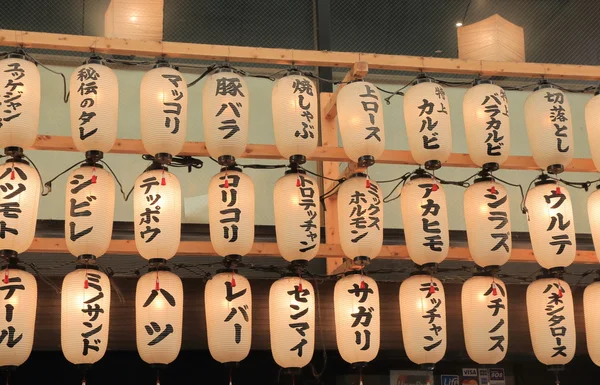 ユッケジャン
秘伝のタレ
マッコリ
豚バラ
焼しゃぶ
上ロース
特上
カルビ
特上
バラカルビ
切落とし
ハツモト
シビレ
テッポウ
コリコリ
コロテッチャン
ミックス
ホルモン
アカヒモ
シラズ
ウルテ
テール
ミノサンド
ハツ
レバー
センマイ
サガリ
テッチャン
ハチノス
ハネシタロース
VISA